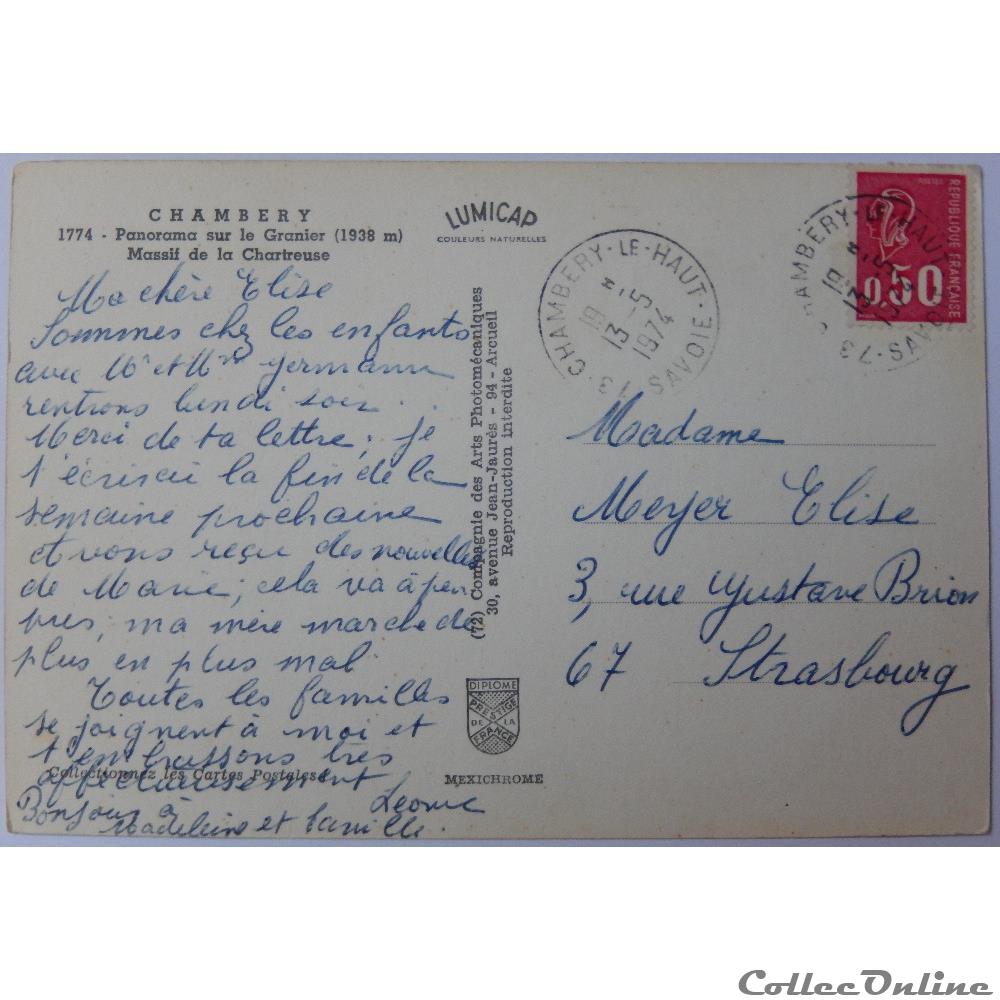 CHAMBERY
1774 - Panorama sur le Granier (1938 m)
Massif de la Chartreuse
LUMICAP
COULEURS NATURELLES
Ma chère Elise
Sommes chez les enfants
avec Mr et Mme Germann
rentrons lundi soir.
Merci de ta lettre, je
t'écrirai la fin de la
semaine prochaine
et vons reçu des nouvelles
de Marie, cela va à peu
près, ma mère marche de
plus en plus mal
Toutes les familles
se joignent à moi et
t'embrassons très
affectueusement
Collectionnez les Cartes Postales
Leonie
Bonjour à
Madeleine et famille.
(72) Compagnie des Arts Photomécaniques
30, avenue Jean-Jaurès - 94 - Arcueil
Reproduction interdite
DIPLOME
PRESTIGE
DE LA
FRANCE
MEXICHROME
CHAMBERY-LE-HAUT
19 H
13 -5
1974
73 · SAVOIE
CHAMBERY-LE-HAUT
19 H
13 -5
73 · SAVOIE
REPUBLIQUE FRANÇAISE
POSTES
0,50
Madame
Meyer Elise
3, rue Gustave Brion
67 Strasbourg
CollecOnline